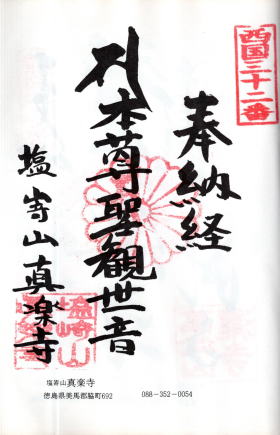 西国三十二番
奉納経
本尊聖観世音
塩嵜山真楽寺
塩嵜山真楽寺
徳島県美馬郡脇町692 088-352-0054